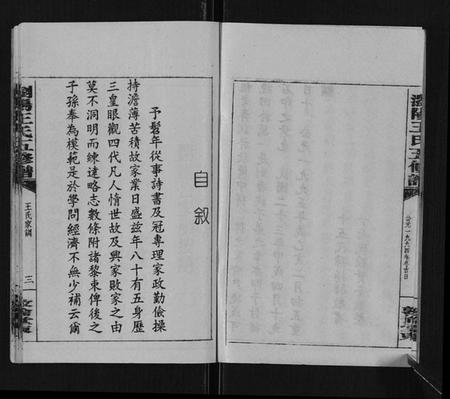 瀏陽王氏五修譜
公元一九九
敦倫堂
自叙
予髫年從事詩書及冠專理家政勤儉操
持澹薄苦積故家業日盛兹年八十有五身歷
三皇眼觀四代凡人情世故及興家敗家之由
莫不洞明而練達略志數條附諸黎棗俾後之
子孫奉為模範是於學問經濟不無少補云爾
瀏陽王氏五修譜
王氏家訓
三